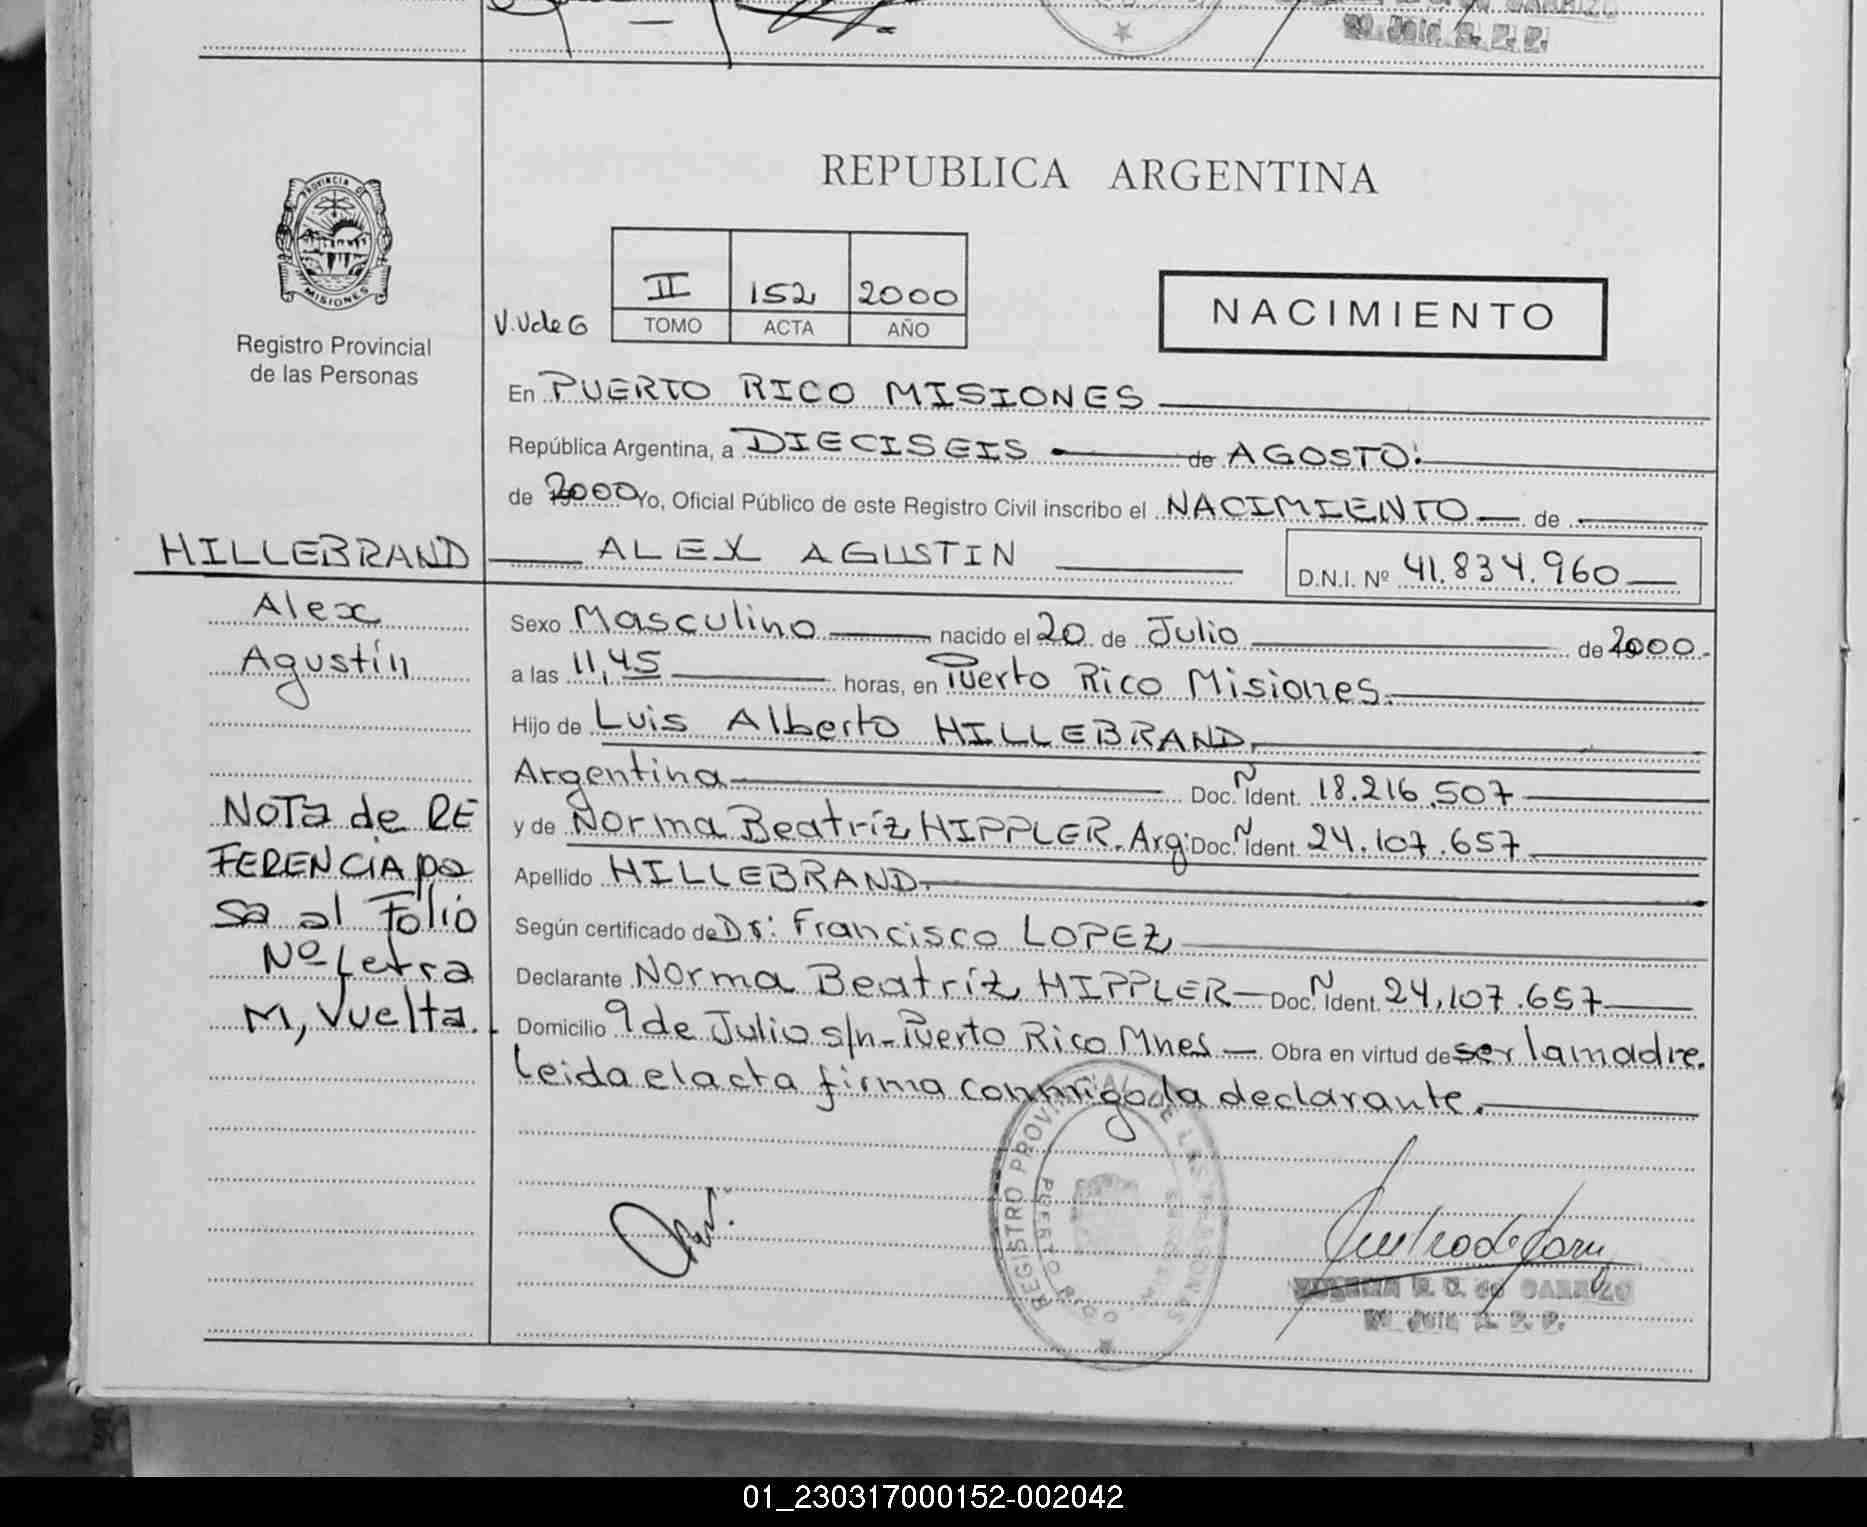 Bº Julio R. P. P.
REPUBLICA ARGENTINA
PROVINCIA DE
MISIONES
Registro Provincial
de las Personas
V.Vde G
II 152 2000
TOMO ACTA AÑO
NACIMIENTO
En PUERTO RICO MISIONES
República Argentina, a DIECISEIS de AGOSTO
de 2000 Yo, Oficial Público de este Registro Civil inscribo el NACIMIENTO de
HILLEBRAND ALEX AGUSTIN D.N.I. Nº 41.834.960
Alex
Agustín
Sexo Masculino nacido el 20 de Julio de 2000.-
a las 11,45 horas, en Puerto Rico Misiones.
Hijo de Luis Alberto HILLEBRAND,
Argentina Doc. Ñ Ident. 18.216.507
y de Norma Beatríz HIPPLER. Arg: Doc. Ñ Ident. 24.107.657
Apellido HILLEBRAND.
Según certificado de Dr: Francisco LOPEZ
Declarante Norma Beatríz HIPPLER- Doc. Ñ Ident. 24,107.657
Domicilio 9 de Julio s/n- Puerto Rico Mnes - Obra en virtud de ser la madre.
Leida el acta firma conmigo la declarante.
NOTA de RE
FERENCIA pa
sa al Folio
Nº Letra
M, Vuelta.
REGISTRO PROVINCIAL DE LAS PERSONAS
PUERTO RICO MISIONES
R. C. de CARRIZO
01_230317000152-002042